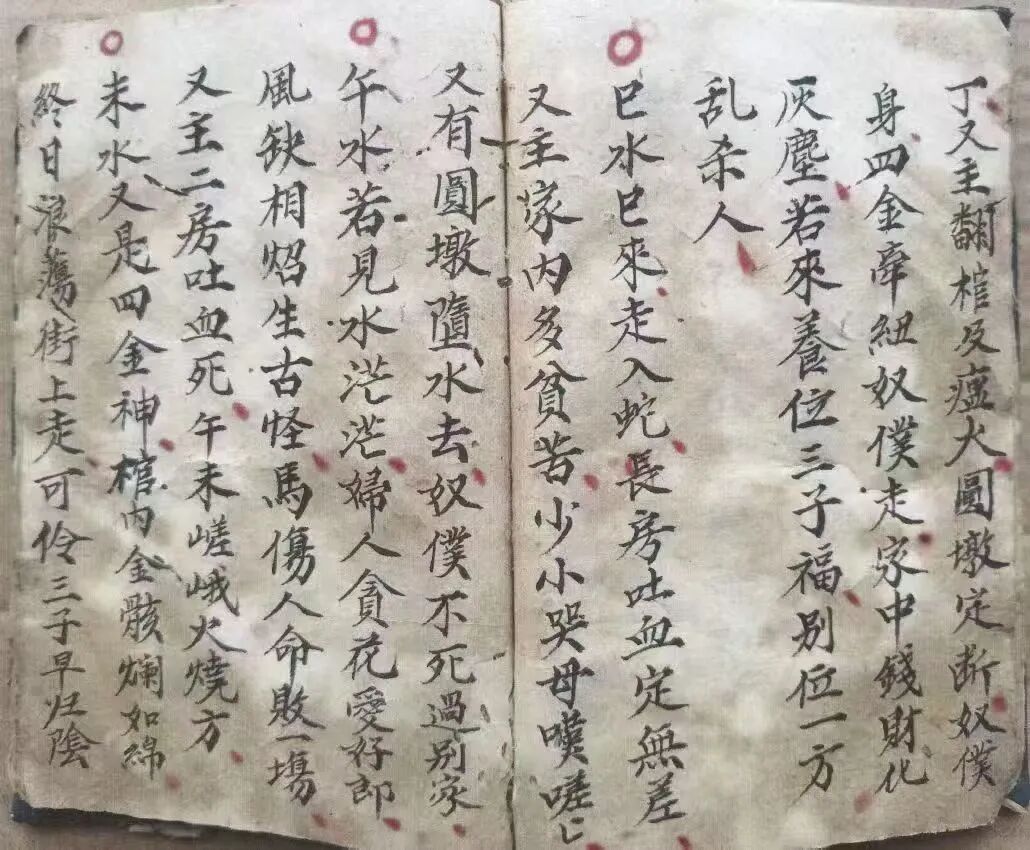 丁又主翻棺及瘟火圓墩定断奴僕
身四金牵紐奴僕走家中錢財化
灰塵若來養位三子福别位一方
乱杀人
巳水巳來走入蛇長房吐血定無差
又主家内多貧苦少小哭母嘆嗟匕
又有圓墩隨水去奴僕不死過别家
午水若見水茫茫婦人貪花愛好郎
風缺相炤生古怪馬傷人命敗一塲
又主二房吐血死午未嵯峨火燒方
未水又是四金神棺内金骸爛如綿
終日浪蕩街上走可伶三子早归陰